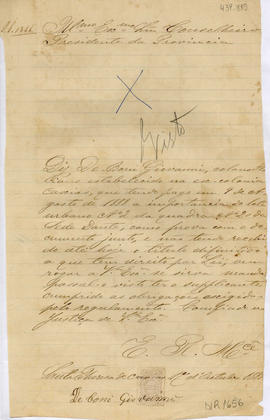 439.889
Illmo Exmo Snr Conselheiro
Presidente da Provincia
Visto
Diz De Boni Giovanni, colono
estabelecido na ex-colonia
Caxias, que tendo pago em 9 de A-
gosto de 1881 a importancia do lote
urbano Nº 2 da quadra Nº 21 da
Séde Dante, como prova com o do-
cumento junto, e não tendo recebi-
do até hoje o titulo
a que tem direito por Lei, vem
rogar a Vª Exª se sirva mandar
visto ter o supplicante
cumprido as obrigações exigidas
pelo regulamento. Confiado na
justiça de Vª Exª
E. R. Mce
De Boni Giovanni
NR1656